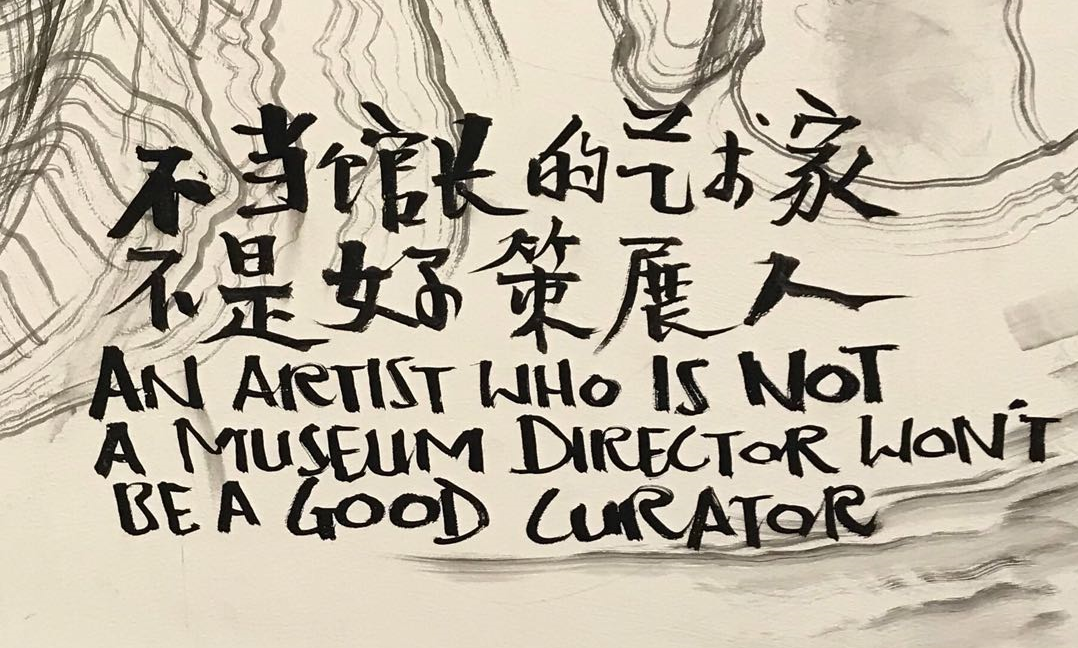 不当馆长的艺术家
不是好策展人
AN ARTIST WHO IS NOT
A MUSEUM DIRECTOR WON'T
BE A GOOD CURATOR